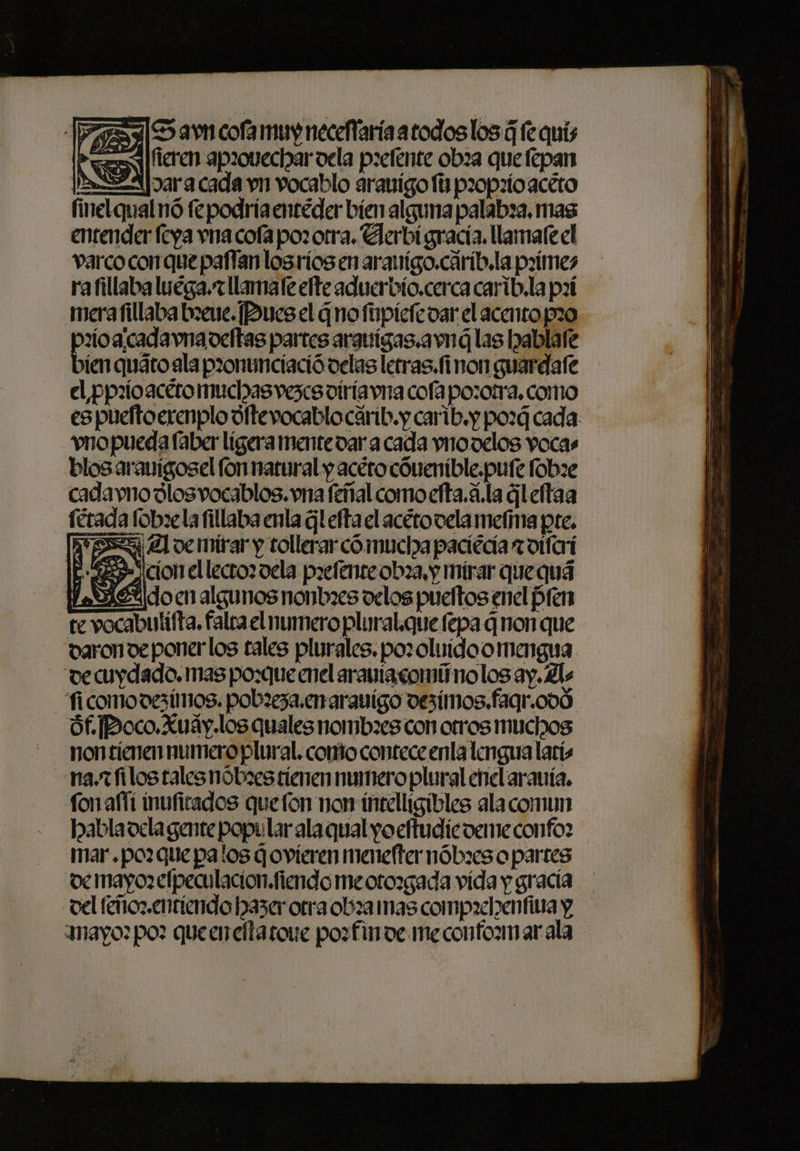 ES avn cosa muy necessaría a todos los q̃ se quí⸗
sieren aprouechar dela presente obra que sepan
dar a cada vn vocablo arauígo su propríoacẽto
sinelqual nõ se podríaentẽder bíen alguna palabra. mas
entender seya vna cosa por otra. Uerbi gracía. llamase el
varco con que passan losríos en arauígo.cārib.la príme⸗
ra sillaba luẽga.⁊ llamase este aduerbío.cerca carìb.la prí
mera sillaba breue. Pues el q̃ no supíese dar el acento pro
prío a cadavna destas partes arauígas.avnq̃ las hablase
bíen quãto ala pronuncíacíõ delas letras.si non guardase
el,ppríoacẽto muchas vezes díríavna cosa por otra, como
es puesto exenplo õste vocablo cārib.y carìb.y porq̃ cada
vno pueda saber lígera mente dar a cada vno delos voca⸗
blos arauígos el son natural y acẽto cõueníble.puse sobre
cadavno õlos vocablos. vna señal como esta.à.la q̃l esta a
sẽtada sobre la sillaba enla q̃l esta el acẽto dela mesma pte.
A de mirar y tollerar cõ mucha pacíẽcía ⁊ díscrí
cíon el lector dela presente obra,y mirar que quã
do en algunos nonbres delos puestos enel p̃sen
te vocabulísta. falta el numero plural.que sepa q̃ non que
daron de poner los tales plurales. por oluído o mengua
de cuydado. mas porque enel arauía comũ no los ay. Al⸗
si como dezímos. pobreza.en arauígo dezímos.faqr.odõ
õs. Poco. Xuáy.los quales nombres con otros muchos
non tíenen numero plural. como contece enla lengua latí⸗
na.⁊ si los tales nõbres tíenen numero plural enel arauía.
son assi inusitados que son non intellígíbles ala comun
habla dela gente popular ala qual yo estudíe deme confor
mar . por que pa los q̃ ovíeren menester nõbres o partes
de mayor especulacíon.síendo me otorgada vída y gracía
del señor.entíendo hazer otra obra mas comprehensíua y
mayor por que en esta toue por fin de me conformar ala